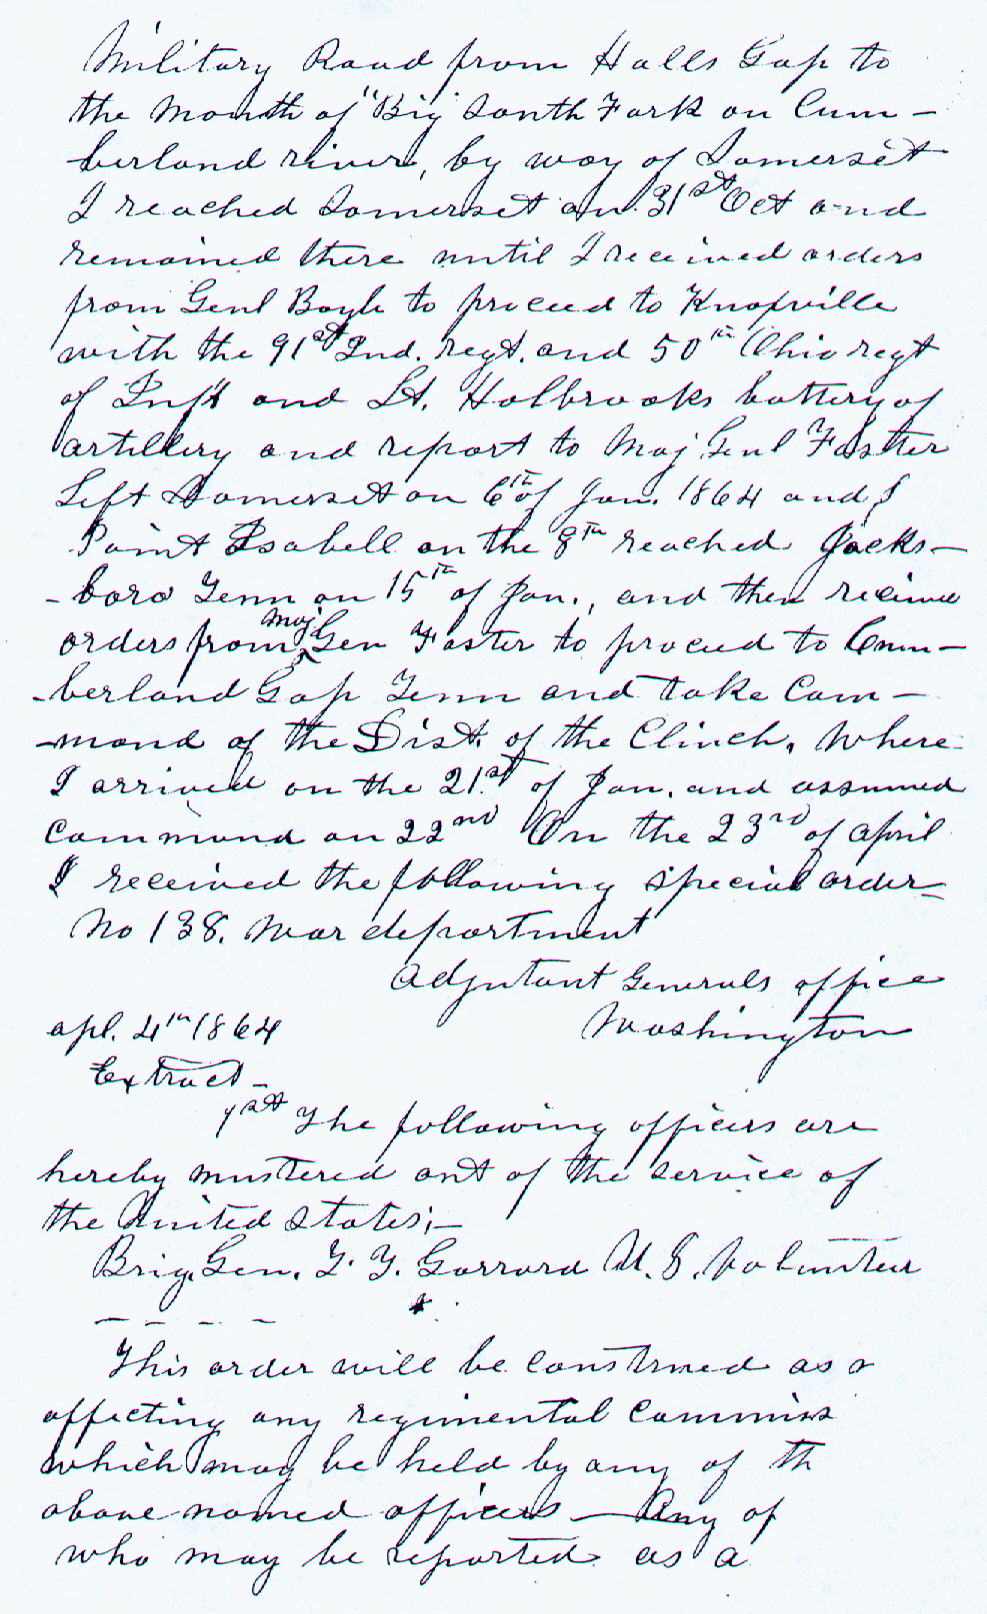 Military Road from Halls Gap to
the Mouth of "Big" South Fork on Cum-
berland river, by way of Somerset
I reached Somerset on 31st Oct and
remained there until I received orders
from Genl Boyle to proceed to Knoxville
with the 91st Ind. regt. and 50th Ohio regt
of Inft and Lt. Holbrooks battery of
artillery and report to Maj Genl Foster
Left Somerset on 6th of Jan. 1864 and
Point Isabell on the 8th reached Jacks-
-boro Tenn on 15th of Jan., and then
orders from Maj Gen Foster to proceed to Cum-
-berland Gap Tenn and take Com-
-mand of the Dist. of the Clinch, Where
I arrived on the 21st of Jan. and assumed
Command on 22nd On the 23rd of april
I received the following special order
No 138. War department
Adjutant Generals office
apl. 4th 1864 Washington
Extract-
1st The following officers are
hereby mustered out of the service of
the United States;-
Brig. Gen. T. T. Garrard U.S. Volunteer
- - - - *
This order will be construed as
affecting any regimental Commiss
which may be held by any of th
above named officers - Any of
who may be reported as a